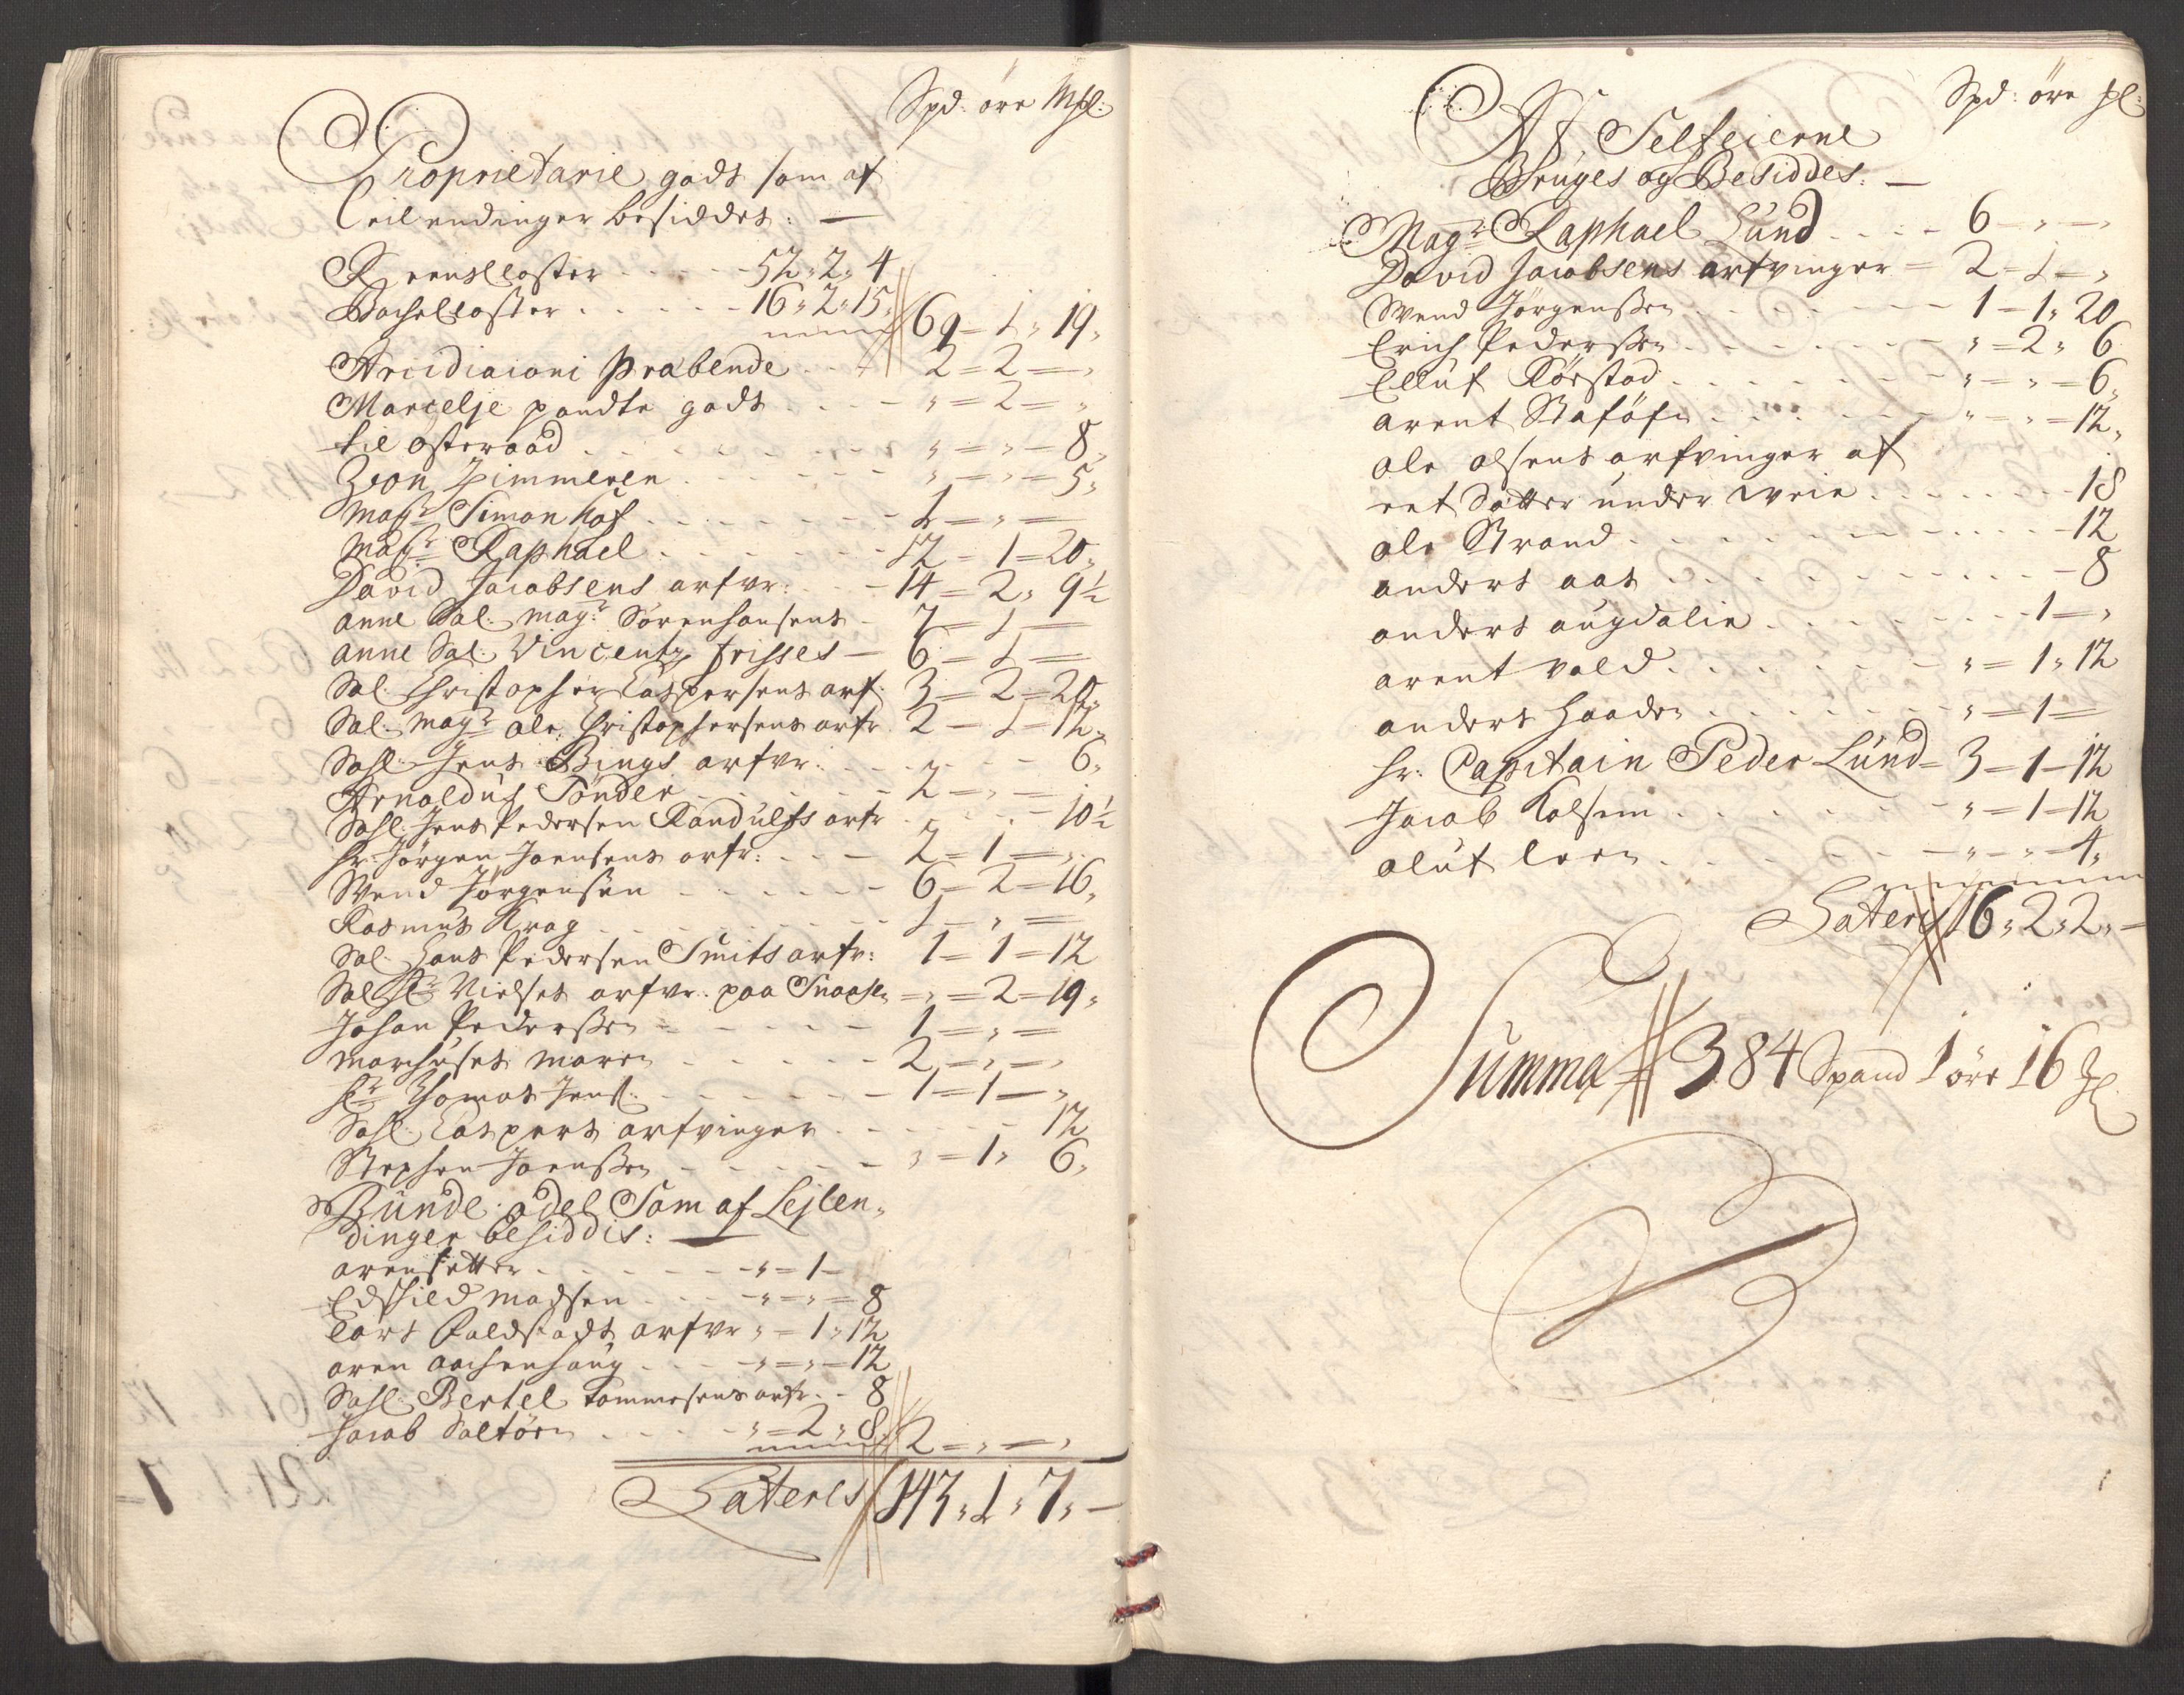 Spd: öre Mhl:
Proprietarie gods som af
Leilendinger besiddes: —
Reenskloster - - - - - 52 " 2 " 4
Bachekloster - - - - - 16 " 2 " 15
69 - 1 " 19 "
Arcidiaconi Præbende - - 2 = 2 = "
Marcelje pandte gods - - - " = 2 = "
til österaad - - - - - - " = " = 8 "
Zeon Zimmeren - - - - - " = " = 5 "
Magr Simon Hof - - - - - 1 = " =
Magr Raphael - - - - - 12 - 1 = 20 "
David Jacobsens arfvr: - - 14 = 2 " 9½
anne Sal: magr Sörenhansens - 7 = 1 =
anne Sal: Vincentz frisses — 6 = 1 =
Sal: Christopher Caspersens arf: 3 = 2 = 20 "
Sal: Magr Ole Christophersens arfr 2 - 1 = 12 "
Sahl: Jens Bings arfvr: - - - - - 6 "
Arnoldus Tönder - - - - - 2 = " =
Sahl: Jens Pedersen Randulfs arfr - - - 10½
hr: Jörgen Joensens arfr: - - - 2 = 1 = "
Svend Jörgensen - - - - - 6 = 2 = 16 "
Rasmus Krag - - - - - - 1 = " =
Sal: Hans Pedersen Smits arfr: 1 = 1 = 12
Sal: Hr Nielses arfvr: paa Snaasen = " = 2 = 19 "
Johan Pederssen - - - - - 1 = " =
marchuses maren - - - - - 2 = " = "
Hr Thomas Jens: - - - - - 1 = 1 = "
Sahl: Caspers arfvinger - - - - - 12
Stephen Joenssen - - - - - " = 1 " 6 "
Bunde: odel Som af Lejlen"
dinger besiddis: —
arensetter - - - - - - - " = 1 -
Edskild madsen - - - - " = " = 8
Lars faldstads arfvr " = 1 " 12
aren aachenhaug - - - " = " = 12
Sahl: Bertel tommesens arfr: - 8
Jacob Saltöen - - - - " = 2 " 8 2 = " = "
Lateris 143 " 1 " 7 " —
Spd: öre hl:
Af Selfeierne
Bruges og Besiddes: —
Magr Raphael Lund - - - - 6 - " = "
David Jacobsens arfvinger = 2 = 1 = "
Svend Jörgenssen - - - - - - - 1 - 1 " 20
Erich Pederssen - - - - - - " = 2 " 6
Elluf Rörstad - - - - - - - " = " = 6 "
arent Staföfn - - - - - - " = " = 12 "
ole olsens arfvinger af
ret Sætter under Weie - - - - - - 18
ole Strand - - - - - - - - - - - 12
anders aas - - - - - - - - - - 8
anders augdalin - - - - - - - - 1 = "
arent vald - - - - - - - - " = 1 " 12
anders haaden - - - - - - - " = 1 =
hr: Capitain Peder Lund = 3 - 1 - 12
Jacob Kolsem - - - - - - - " = 1 - 12
oluf leen - - - - - - - - " - " - 4 "
Lateris 16 " 2 " 2 " —
Summa 384 Spand 1 öre 16 hl